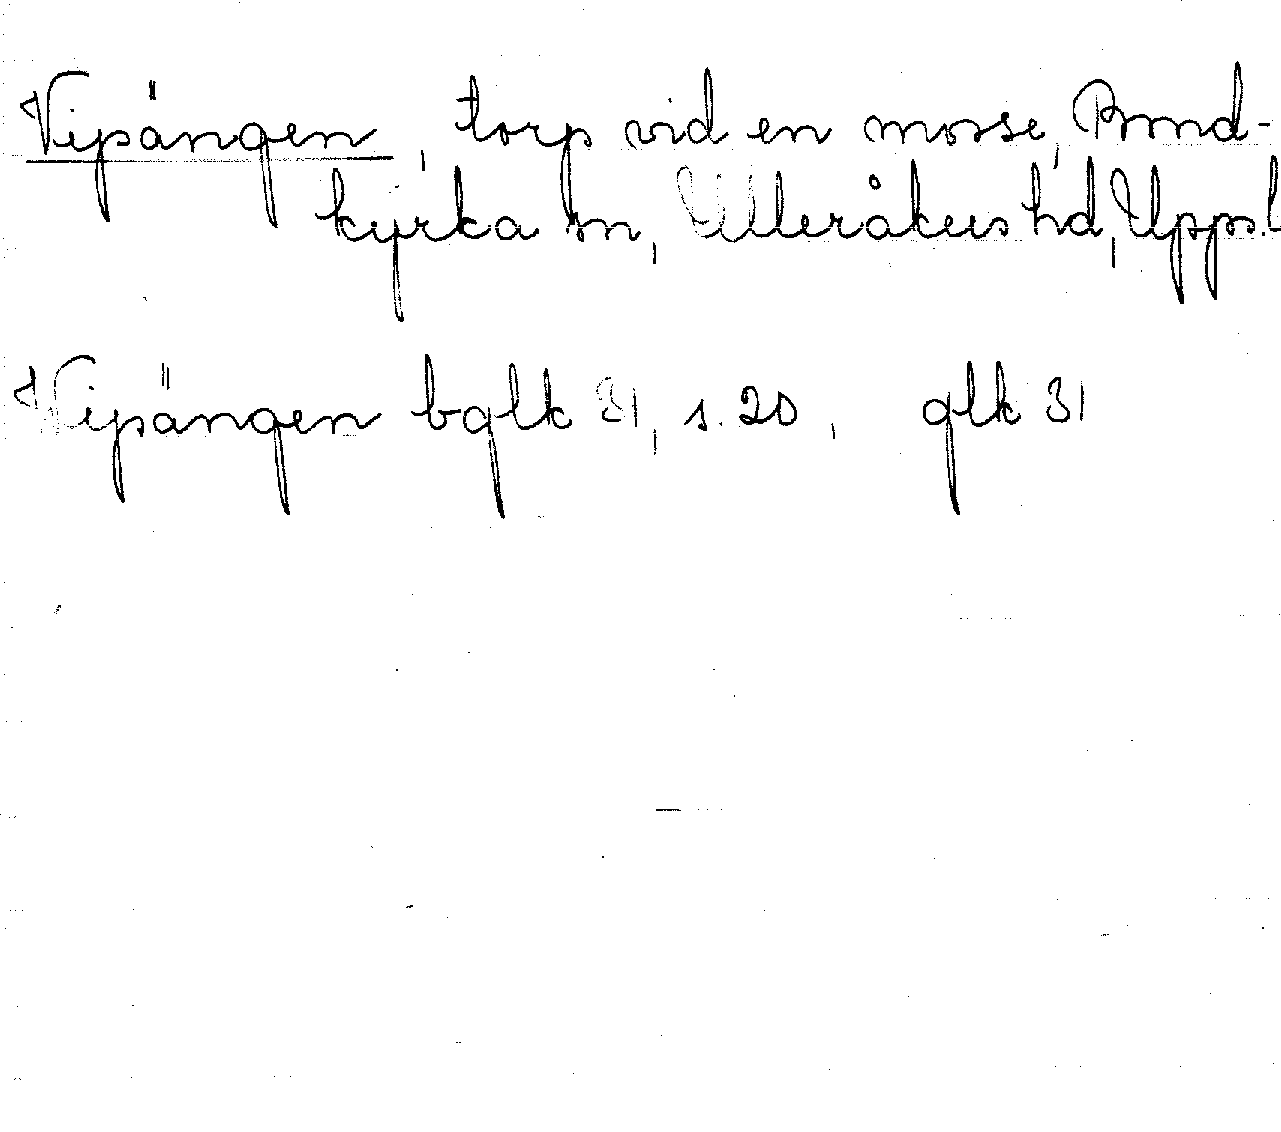 Vipängen, torp vid en mosse, Bond-
kyrka sn, Ulleråkers hd, Upps.l
Vipängen bglk 31, s. 20, glk 31